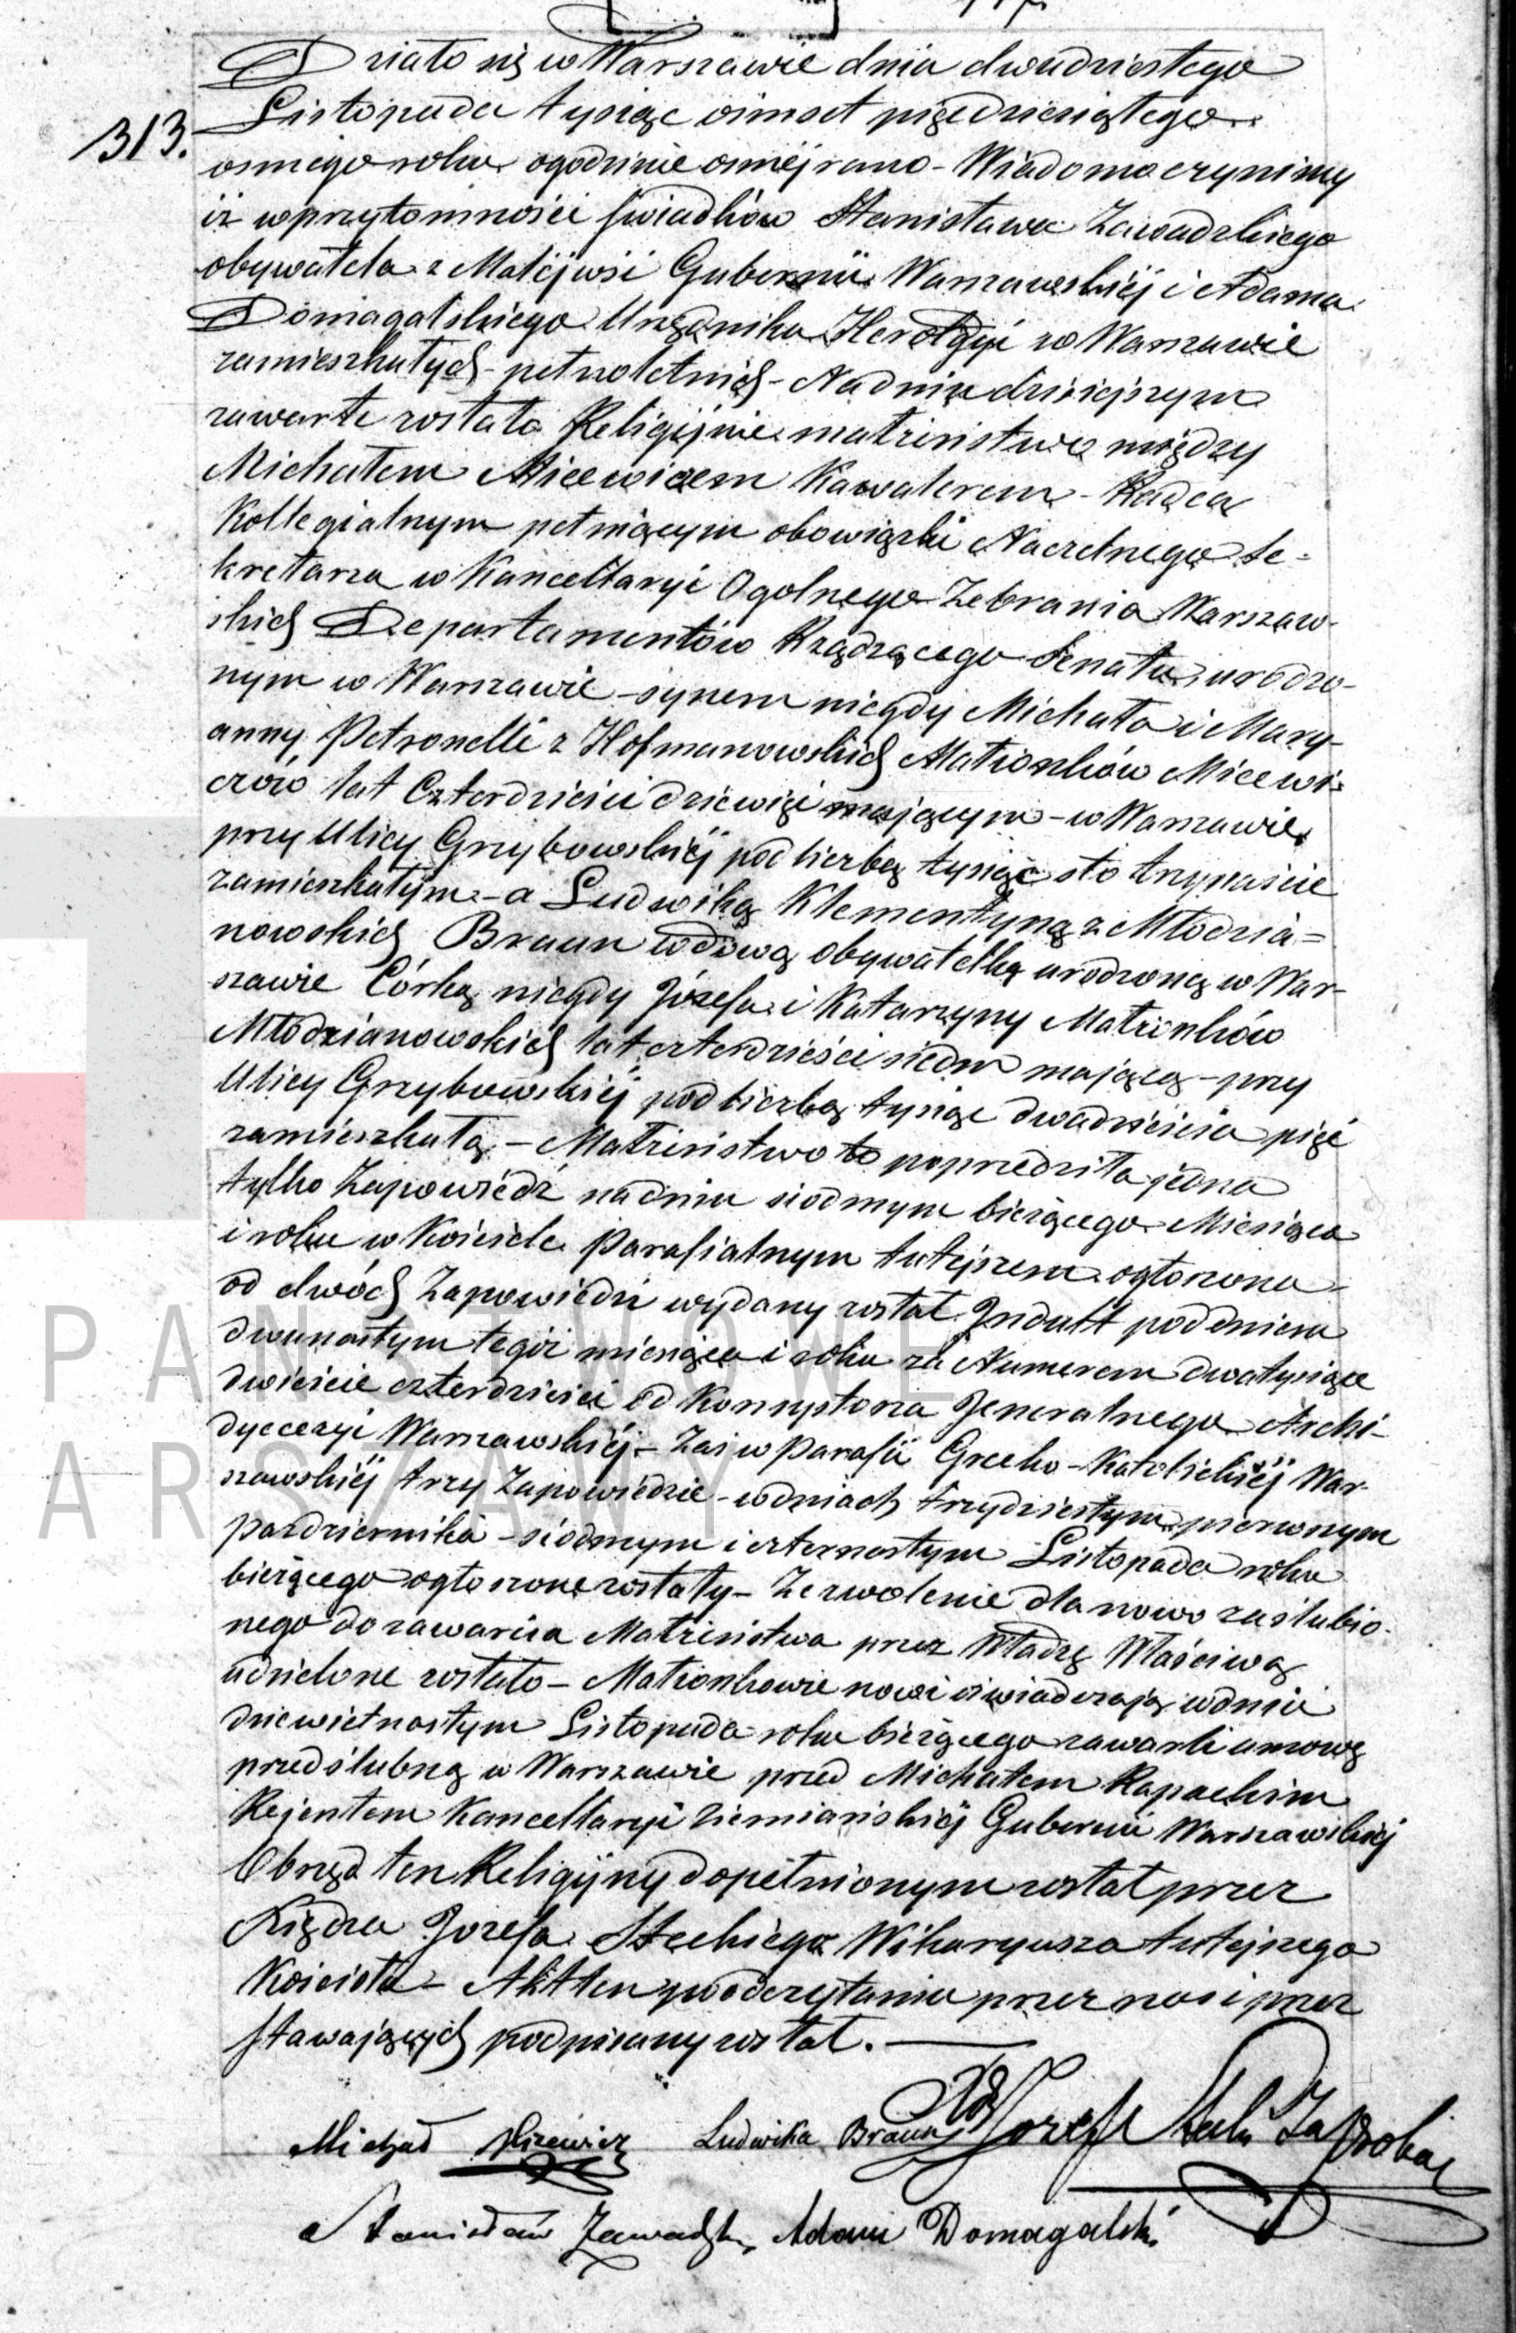 313.
Działo się w Warszawie dnia dwudziestego
Listopada tysiąc ośmset pięćdziesiątego
osmego roku ogodzinie osmej rano - Wiadomo czynimy
iż wprzytomności świadków Stanisława Zawadzkiego
obywatela z Gubernii Warszawskiéj i Adama
Domagalskiego Urzędnika Heroldyi w Warszawie
zamieszkałych - pełnoletnich - Na dniu dzisiejszym
zawarte zostało Religijnie małżeństwo między
Michałem Micewiczem Kawalerem - Radcą
Kollegialnym pełniącym obowiązki Naczelnego Se=
kretarza w Kancellaryi Ogolnego Zebrania Warszaw-
skich Departamentów Rządzącego Senatu, urodzo-
nym w Warszawie - synem niegdy Michała i Mary-
anny Petronelli z Hofmanowskich Małżonków Micewi-
czów lat Czterdzieści dziewięć mającym - w Warszawie
przy Ulicy Grzybowskiéj pod liczbą tysiąc sto trzynaście
zamieszkałym - a Ludwiką Klementyną z Młodzia=
nowskich Braun wdową obywatelką urodzoną w War-
szawie Córką niegdy Józefa i Katarzyny Małżonków
Młodzianowskich lat czterdzieści siedm mającą - przy
Ulicy Grzybowskiéj pod liczbą tysiąc dwadzieścia pięć
zamieszkałą - Małżeństwo to poprzedziła jedna
tylko Zapowiedź na dniu siodmym bieżącego Miesiąca
i roku w Kościele Parafialnym tutejszem ogłoszona -
od dwóch Zapowiedzi wydany został Indult pod dniem
dwunastym tegoż miesiąca i roku za Numerem dwatysiące
dwieście czterdzieści od Konsystorza Jeneralnego Archi-
dyecezyi Warszawskiéj - Zaś w Parafii Grecko-Katolickiéj War-
szawskiéj trzy Zapowiedzie - w dniach trzydziestym pierwszym
Pazdziernika - siódmym i czternastym Listopada roku
bieżącego ogłoszone zostały - Zezwolenie dla nowo zaślubio-
nego do zawarcia Małżeństwa przez Władzę Właściwą
udzielone zostało - Małżonkowie nowi oświadczają iż w dniu
dziewiętnastym Listopada roku bieżącego zawarli umowę
przedślubną w Warszawie przed Michałem Rapackim
Rejentem Kancellaryi Ziemiańskiéj Gubernii Warszawskiéj
Obrzęd ten Religijny dopełnionym został przez
Xiędza Jozefa Steckiego Wikaryusza tutejszego
Kościoła - Akt ten po odczytaniu przez nas i przez
stawających podpisany został. -
Michał Micewicz Ludwika Braun XJozef Stecki Za Proboszcza
Stanisław Zawadzki, Adam Domagalski
PAŃSTWOWE
ARSZAWY